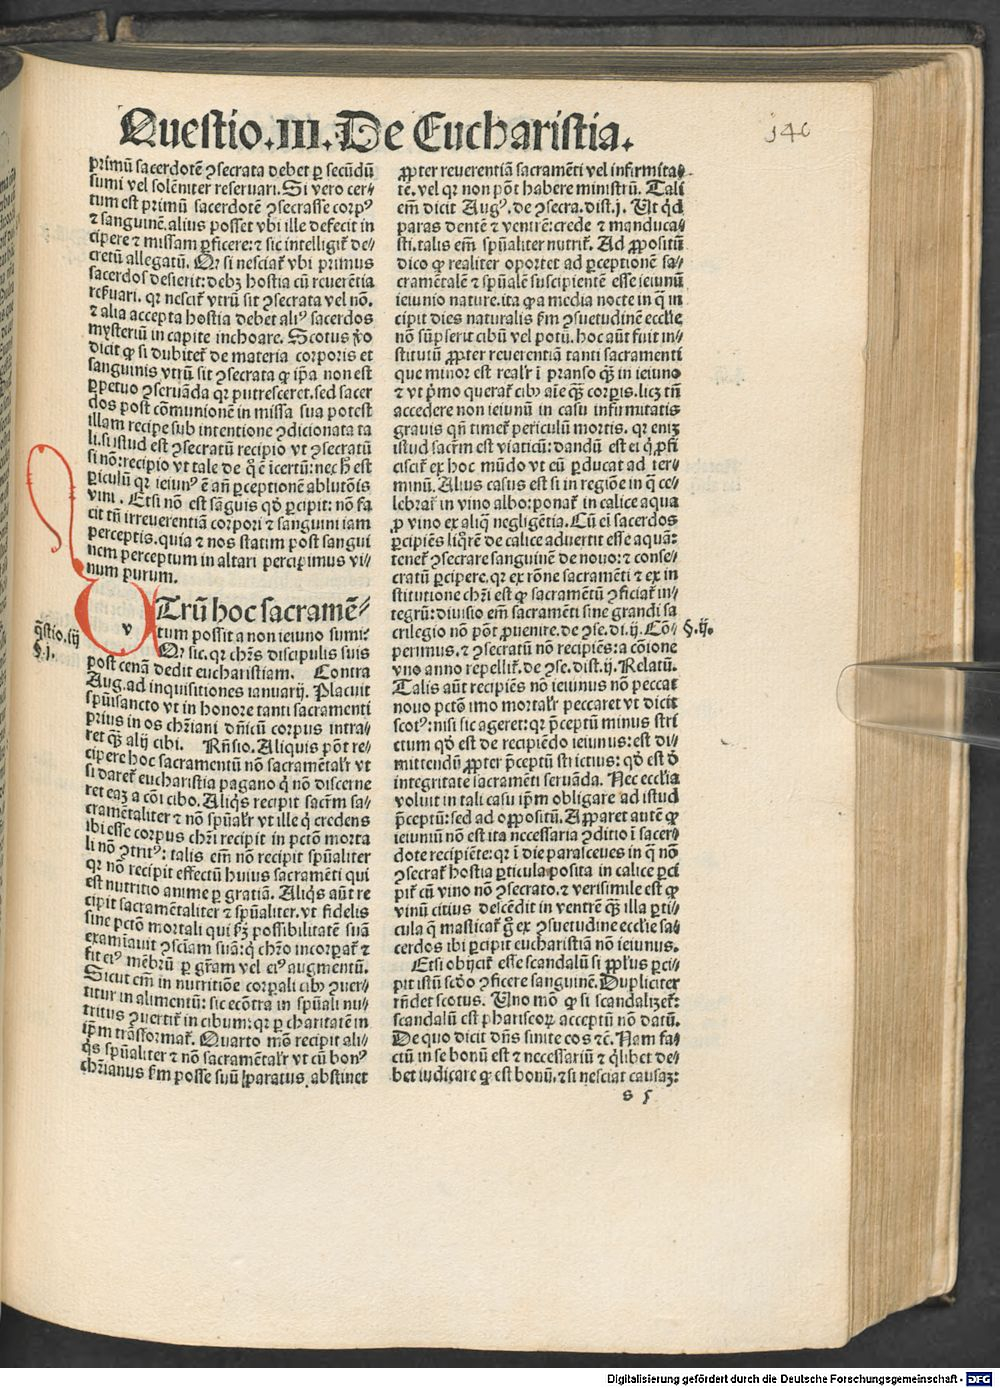 Questio.III.De Eucharistia.
140
primũ sacerdotẽ ꝯsecrata debet ꝑ secũdũ
sumi vel solẽniter reseruari. Si vero cer⸗
tum est primũ sacerdotẽ ꝯsecrasse corpꝰ
⁊ sanguinẽ. alius posset vbi ille defecit in
cipere ⁊ missam ꝑficere: ⁊ sic intelligit̃ de⸗
cretũ allegatũ. Qꝛ si nesciat̃ vbi primus
sacerdos desierit: debꝫ hostia cũ reuerẽtia
reẜuari. qꝛ nescit̃ vtrũ sit ꝯsecrata vel nõ.
⁊ alia accepta hostia debet aliꝰ sacerdos
mysteriũ in capite inchoare. Scotus ṽo
dicit ꝙ si dubitet̃ de materia corporis et
sanguinis vtrũ sit ꝯsecrata ꝙ ip̃a non est
ꝑpetuo ꝯseruãda qꝛ putresceret. sed sacer
dos post cõmunionẽ in missa sua potest
illam recipe sub intentione ꝯdicionata ta
li. si istud est ꝯsecratũ recipio vt ꝯsecratũ
si nõ: recipio vt tale de q̃ ẽ ĩcertũ: nec h̃ est
ꝑiculũ qꝛ ieiunꝰ ẽ añ ꝑceptionẽ ablutõis
vini. Etsi nõ est sãguis qđ ꝑcipit: nõ fa
cit tñ irreuerentiã corpori ⁊ sanguini iam
perceptis. quia ⁊ nos statim post sangui
nem perceptum in altari percipimus vi⸗
num purum.
qſtio.iij
§.j.
v
Trũ hoc sacramẽ⸗
tum possit a non ieiuno sumi:
Qꝛ sic. qꝛ chr̃s discipulis suis
post cenã dedit eucharistiam. Contra
Aug. ad inquisitiones ianuarij. Placuit
spũisancto vt in honore tanti sacramenti
prius in os chr̃iani dñicũ corpus intra⸗
ret q̃ꝫ alij cibi. Rñsio. Aliquis põt re⸗
cipere hoc sacramentũ nõ sacramẽtalr̃ vt
si daret̃ eucharistia pagano q̃ nõ discerne
ret eaꝫ a cõi cibo. Aliq̃s recipit sacr̃m sa⸗
cramẽtaliter ⁊ nõ spũalr̃ vt ille q̃ credens
ibi esse corpus chr̃i recipit in pctõ morta
li nõ ꝯtritꝰ: talis em̃ nõ recipit spũaliter
qꝛ nõ recipit effectũ huius sacramẽti qui
est nutritio anime ꝑ gratiã. Aliq̃s aũt re
cipit sacramẽtaliter ⁊ spũaliter. vt fidelis
sine pctõ mortali qui ẜꝫ possibilitatẽ suã
examĩauit ꝯsciam suã: q̃ chr̃o incorꝑat̃ ⁊
fit eiꝰ mẽbrũ ꝑ gr̃am vel eiꝰ augmentũ.
Sicut em̃ in nutritiõe corꝑali cibꝰ ꝯuer⸗
titur in alimentũ: sic ecõtra in spũali nu⸗
tritus ꝯuertit̃ in cibum: qꝛ ꝑ charitatẽ in
ip̃m trãsformat̃. Quarto mõ recipit ali⸗
q̃s spũaliter ⁊ nõ sacramẽtalr̃ vt cũ bonꝰ
chr̃ianus ẜm posse suũ p̃paratus abstinet
ꝓpter reuerentiã sacramẽti vel infirmita⸗
tẽ. vel qꝛ non põt habere ministrũ. Tali
em̃ dicit Augꝰ. de ꝯsecra. dist. j. Ut qđ
paras dentẽ ⁊ ventrẽ: crede ⁊ manduca⸗
sti. talis em̃ spũaliter nutrit̃. Ad ꝓpositũ
dico ꝙ realiter oportet ad ꝑceptionẽ sa⸗
cramẽtalẽ ⁊ spũalẽ suscipientẽ esse ieiunũ
ieiunio nature. ita ꝙ a media nocte in q̃ in
cipit dies naturalis ẜm ꝯsuetudinẽ ecclie
nõ sũpserit cibũ vel potũ. hoc aũt fuit in⸗
stitutũ ꝓpter reuerentiã tanti sacramenti
que minor est realr̃ ĩ pranso q̃ꝫ in ieiuno
⁊ vt p̃mo querat̃ cibꝰ aĩe q̃ꝫ corꝑis. licꝫ tñ
accedere non ieiunũ in casu infirmitatis
grauis qñ timet̃ periculũ mortis. qꝛ eniꝫ
istud sacr̃m est viaticũ: dandũ est ei q̃ ꝓfi
ciscit̃ ex hoc mũdo vt eũ ꝑducat ad ter⸗
minũ. Alius casus est si in regiõe in q̃ ce⸗
lebrat̃ in vino albo: ponat̃ in calice aqua
ꝓ vino ex aliq̃ negligẽtia. Cũ ei sacerdos
ꝑcipiẽs liq̃rẽ de calice aduertit esse aquã:
tenet̃ ꝯsecrare sanguinẽ de nouo: ⁊ conse⸗
cratũ ꝑcipere. qꝛ ex rõne sacramẽti ⁊ ex in
stitutione chr̃i est ꝙ sacramẽtũ ꝯficiat̃ in⸗
tegrũ: diuisio em̃ sacramẽti sine grandi sa
crilegio nõ põt ꝓuenire. de ꝯse. di. ij. Cõ⸗
§.ij.
perimus. ⁊ ꝯsecratũ nõ recipiẽs: a cõione
vno anno repellit̃. de ꝯse. dist. ij. Relatũ.
Talis aũt recipiẽs nõ ieiunus nõ peccat
nouo pctõ imo mortalr̃ peccaret vt dicit
scotꝰ: nisi sic ageret: qꝛ p̃ceptũ minus stri
ctum qđ est de recipiẽdo ieiunus: est di⸗
mittendũ ꝓpter p̃ceptũ strictius: qđ est đ
integritate sacramẽti seruãda. Nec ecclia
voluit in tali casu ip̃m obligare ad istud
p̃ceptũ: sed ad oppositũ. Apparet autẽ ꝙ
ieiuniũ nõ est ita necessaria ꝯditio ĩ sacer⸗
dote recipiẽte: qꝛ ĩ die parasceues in q̃ nõ
ꝯsecrat̃ hostia ꝑticula posita in calice ꝑci
pit̃ cũ vino nõ ꝯsecrato. ⁊ verisimile est ꝙ
vinũ citius descẽdit in ventrẽ q̃ꝫ illa ꝑti⸗
cula q̃ masticat̃ g̃ ex ꝯsuetudine ecclie sa⸗
cerdos ibi ꝑcipit eucharistiã nõ ieiunus.
Etsi obijcit̃ esse scandalũ si pp̃lus ꝑci⸗
pit istũ scđo ꝯficere sanguinẽ. Dupliciter
rñdet scotus. Uno mõ ꝙ si scandalizet̃:
scandalũ est phariseoꝝ acceptũ nõ datũ.
De quo dicit dñs sinite eos ⁊c̃. Nam fa⸗
ctũ in se bonũ est ⁊ necessariũ ⁊ q̃libet de⸗
bet iudicare ꝙ est bonũ. ⁊ si nesciat causaꝫ:
s 5
Digitalisierung gefördert durch die Deutsche Forschungsgemeinschaft - DFG